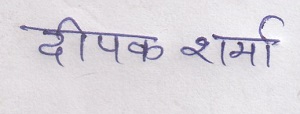 दीपक शर्मा